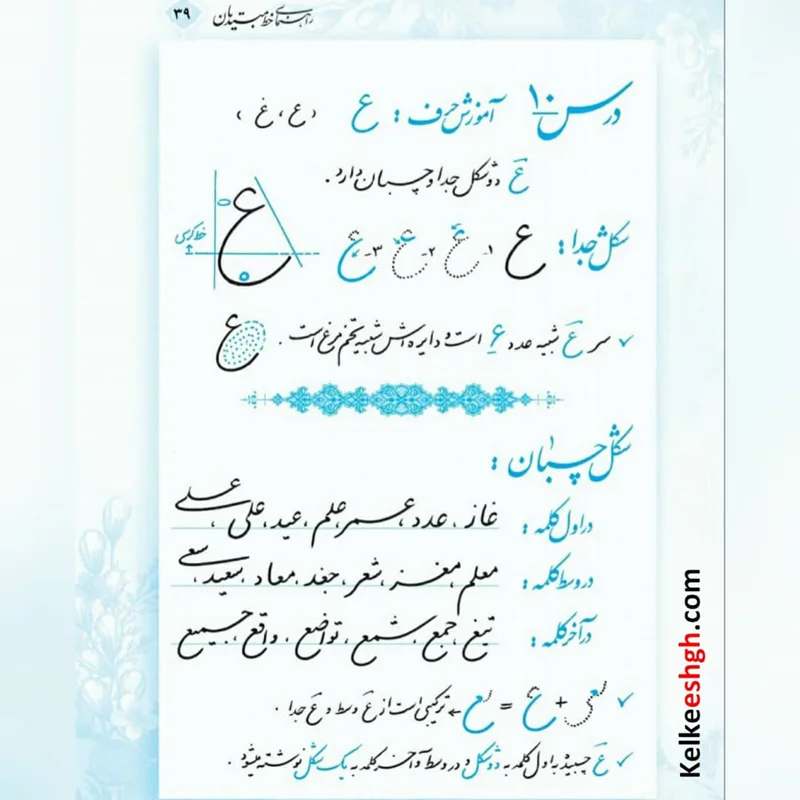 راهنمای خط مبتدیان ۳۹
درس ۱۰ آموزش حرف : ع (ع ، غ)
عَ دو شکل جدا و چسبان دارد .
شکل جدا : ع ۱- ع ۲- ع ۳- ع ع
خط کرسی
✓ سر عَ شبیه عدد ۶ است و دایره اش شبیه تخم مرغ است . ع
شکل چسبان :
در اول کلمه : غاز ، عدد ، عمر ، علم ، عید ، علی ، علی
در وسط کلمه : معلم ، مغز ، شعر ، جغد ، معاد ، سعید ، سعی
در آخر کلمه : تیغ ، جمع ، شمع ، تواضع ، واقع ، جمیع
✓ ع + ع = ع ← ترکیبی است از عَ وسط و عَ جدا .
✓ عَ چسبیده به اول کلمه به دو شکل و در وسط و آخر کلمه به یک شکل نوشته میشود .
Kelkeeshgh.com